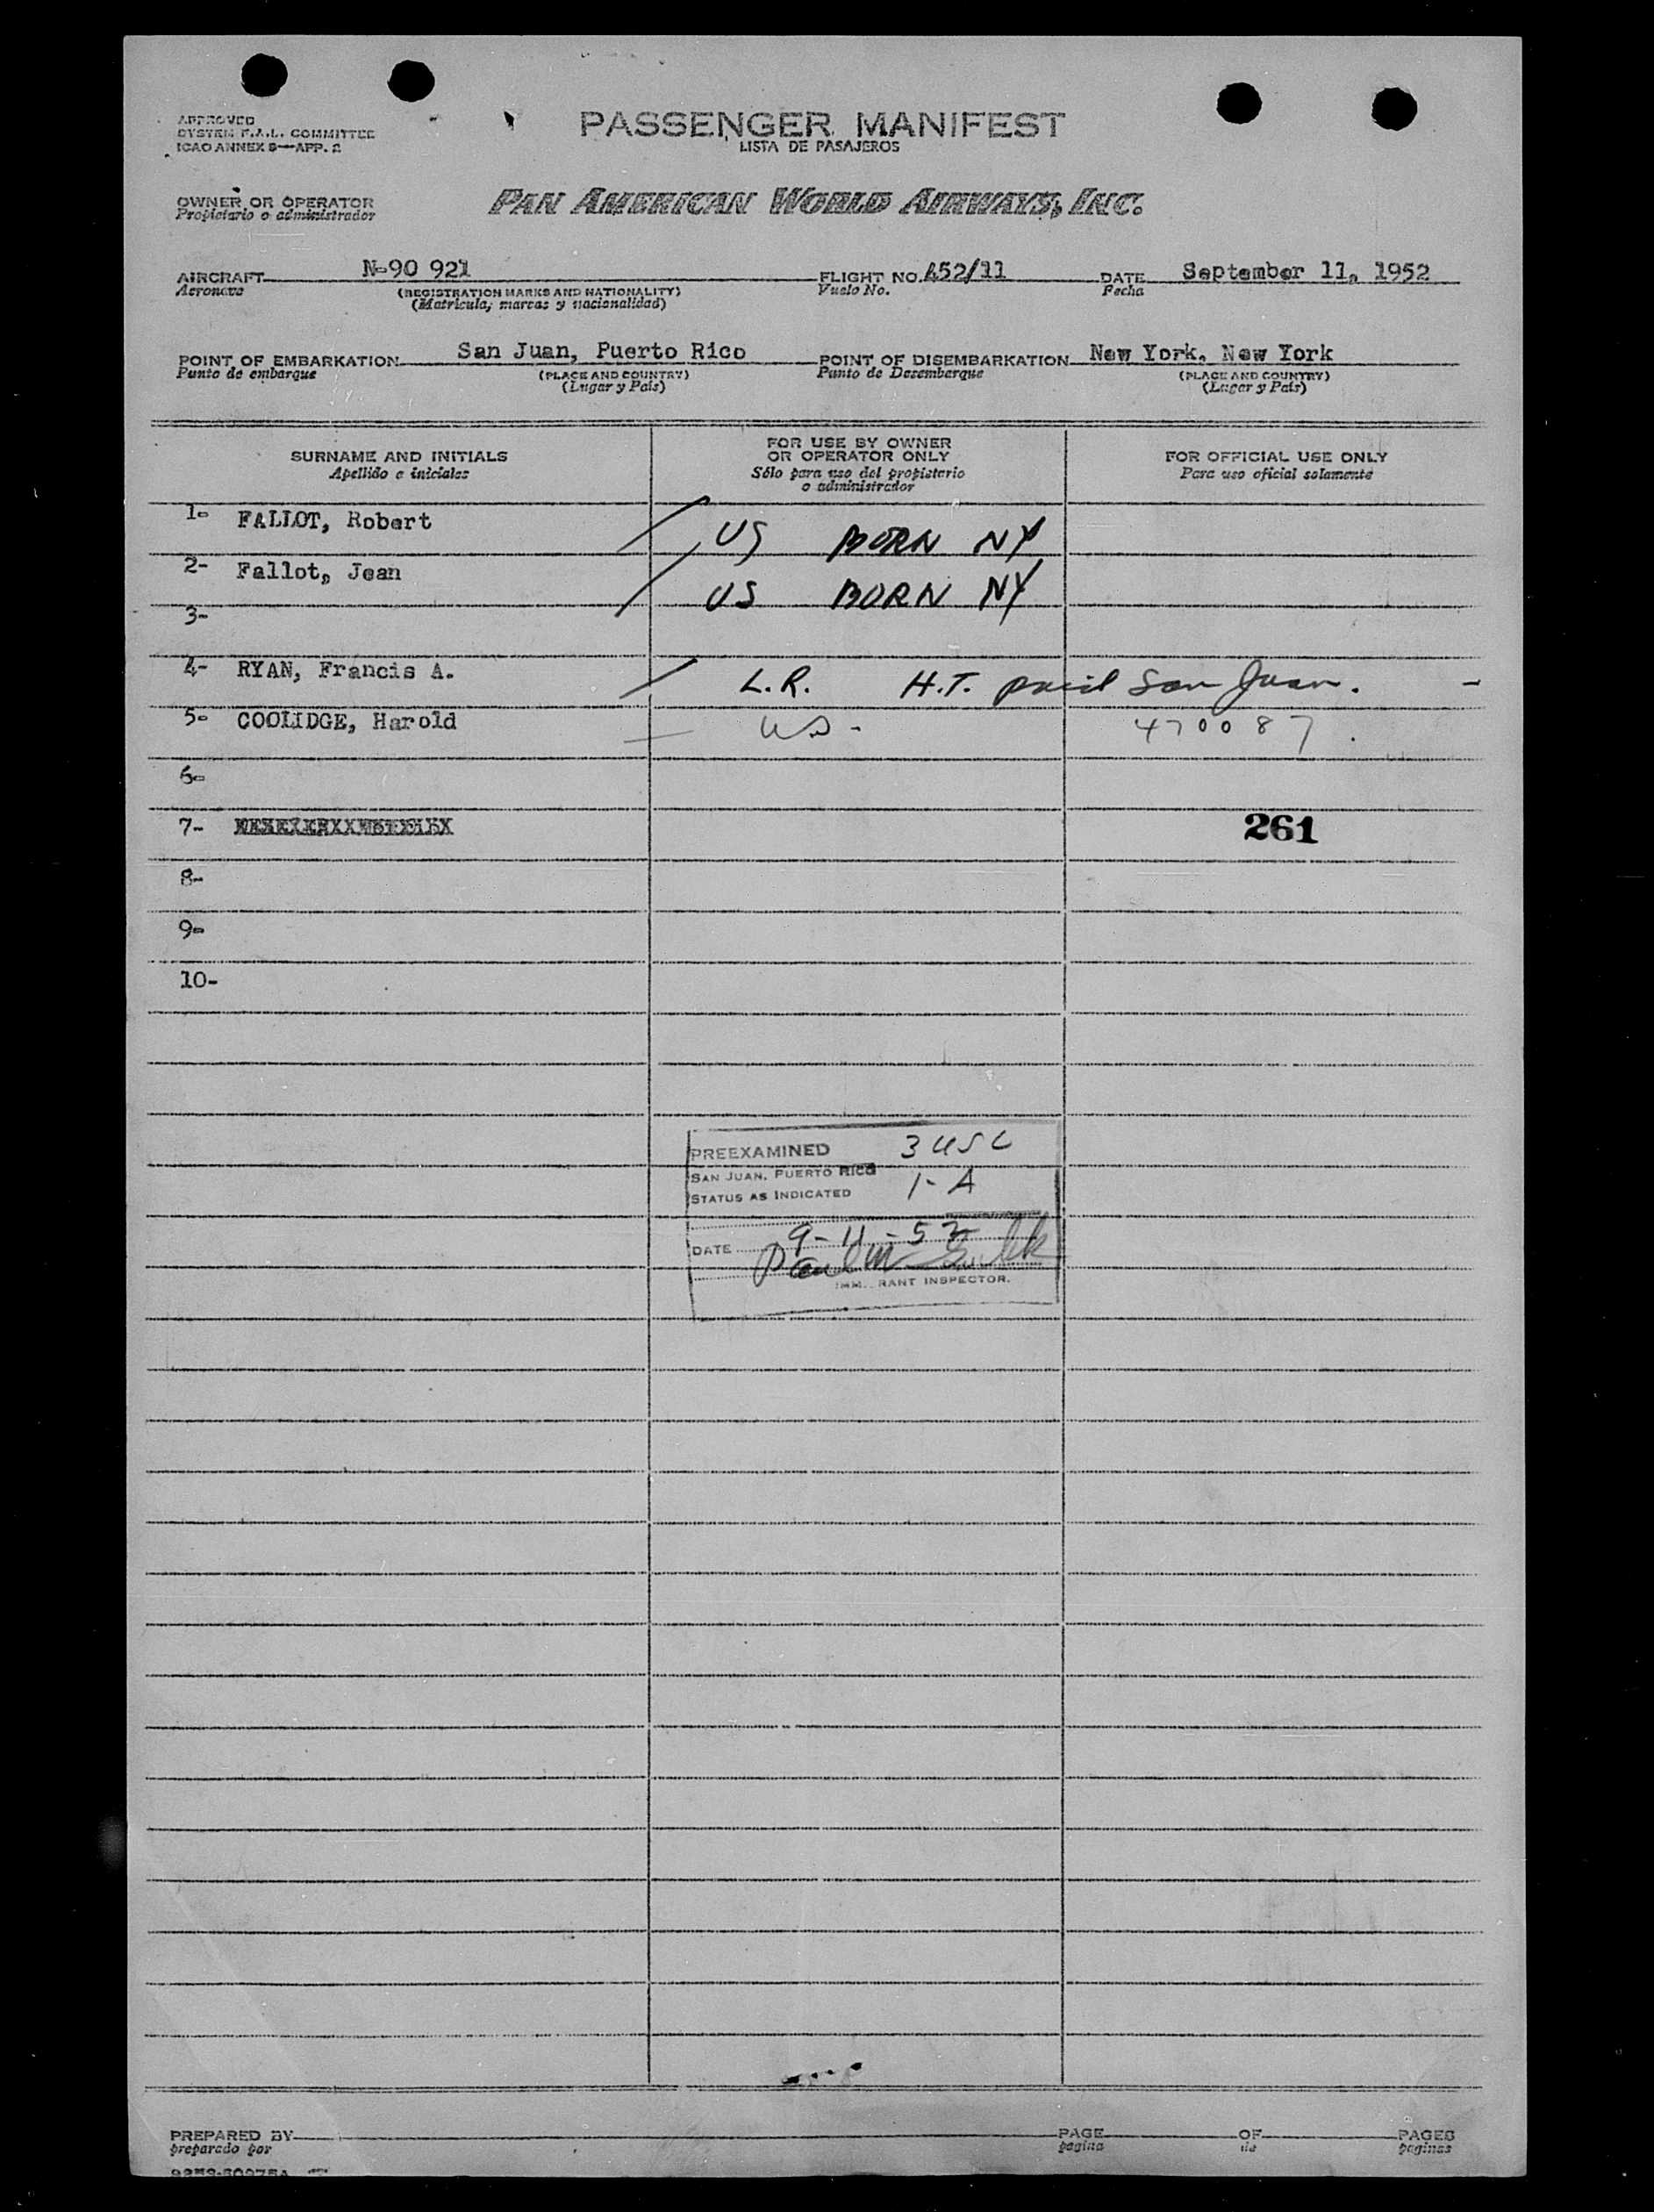 APPROVED
SYSTEM F.A.L. COMMITTEE
ICAO ANNEX 9—APP. 2
PASSENGER MANIFEST
LISTA DE PASAJEROS
OWNER OR OPERATOR
Propietario o administrador
PAN AMERICAN WORLD AIRWAYS, INC.
AIRCRAFT N-90 921 FLIGHT NO. 452/11 DATE September 11, 1952
Aeronave (REGISTRATION MARKS AND NATIONALITY) Vuelo No. Fecha
(Matrícula, marcas y nacionalidad)
POINT OF EMBARKATION San Juan, Puerto Rico POINT OF DISEMBARKATION New York, New York
Punto de embarque (PLACE AND COUNTRY) Punto de Desembarque (PLACE AND COUNTRY)
(Lugar y País) (Lugar y País)
SURNAME AND INITIALS
Apellido e iniciales
FOR USE BY OWNER
OR OPERATOR ONLY
Sólo para uso del propietario
o administrador
FOR OFFICIAL USE ONLY
Para uso oficial solamente
1- FALLOT, Robert US BORN NY
2- Fallot, Jean US BORN NY
3-
4- RYAN, Francis A. L.R. H.T. paid San Juan. -
5- COOLIDGE, Harold US - 470087.
6-
7- 261
8-
9-
10-
PREEXAMINED 3 USC
SAN JUAN, PUERTO RICO
STATUS AS INDICATED 1-A
DATE 9-11-52
IMM. RANT INSPECTOR.
PREPARED BY PAGE OF PAGES
preparado por página de páginas